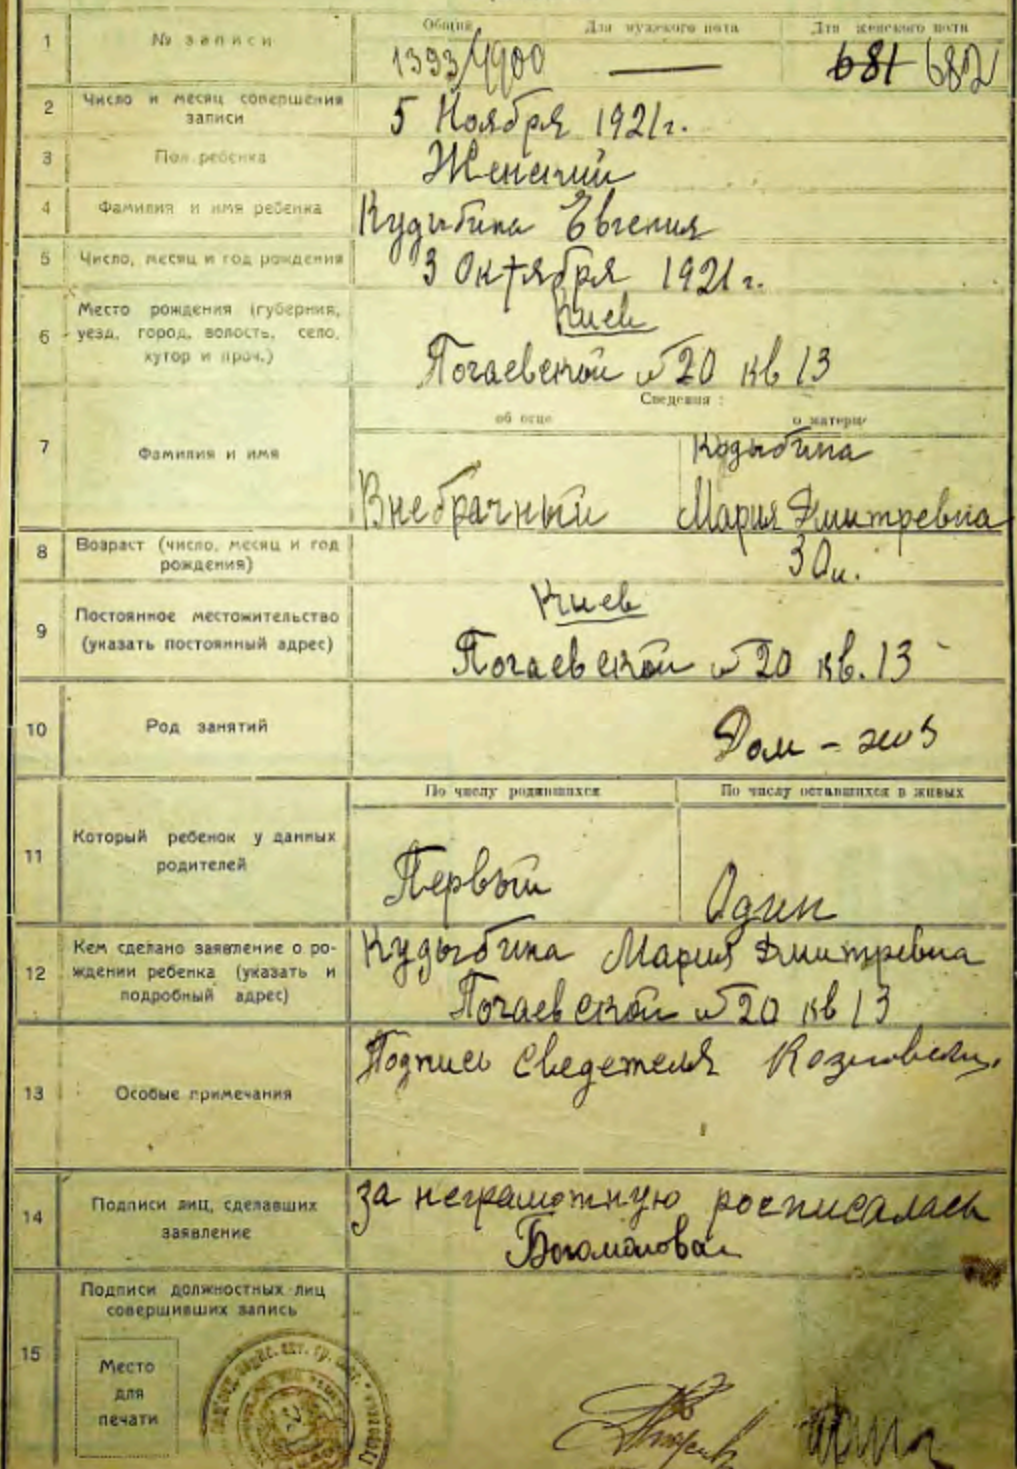 Общий Для мужского пола Для женского пола
1 № записи 1393/4900 — 681 682
2 Число и месяц совершения
записи
5 Ноября 1921 г.
3 Пол ребенка Женский
4 Фамилия и имя ребенка Кудыбина Евгения
5 Число, месяц и год рождения 3 Октября 1921 г.
6 Место рождения (губерния,
уезд, город, волость, село,
хутор и проч.)
Киев
Почаевской № 20 кв 13
Сведения:
об отце о матери
7 Фамилия и имя
Кудыбина
Внебрачный Мария Дмитревна
8 Возраст (число, месяц и год
рождения)
30 л.
9 Постоянное местожительство
(указать постоянный адрес)
Киев
Почаевской № 20 кв. 13
10 Род занятий Дом - хоз
По числу родившихся По числу оставшихся в живых
11 Который ребенок у данных
родителей
Первый Один
12 Кем сделано заявление о ро-
ждении ребенка (указать и
подробный адрес)
Кудыбина Мария Дмитревна
Почаевской № 20 кв 13
13 Особые примечания
Подпись Сведетеля
14 Подписи лиц, сделавших
заявление
за неграмотную росписалась
Богомолова
15 Подписи должностных лиц
совершивших запись
Место
для
печати